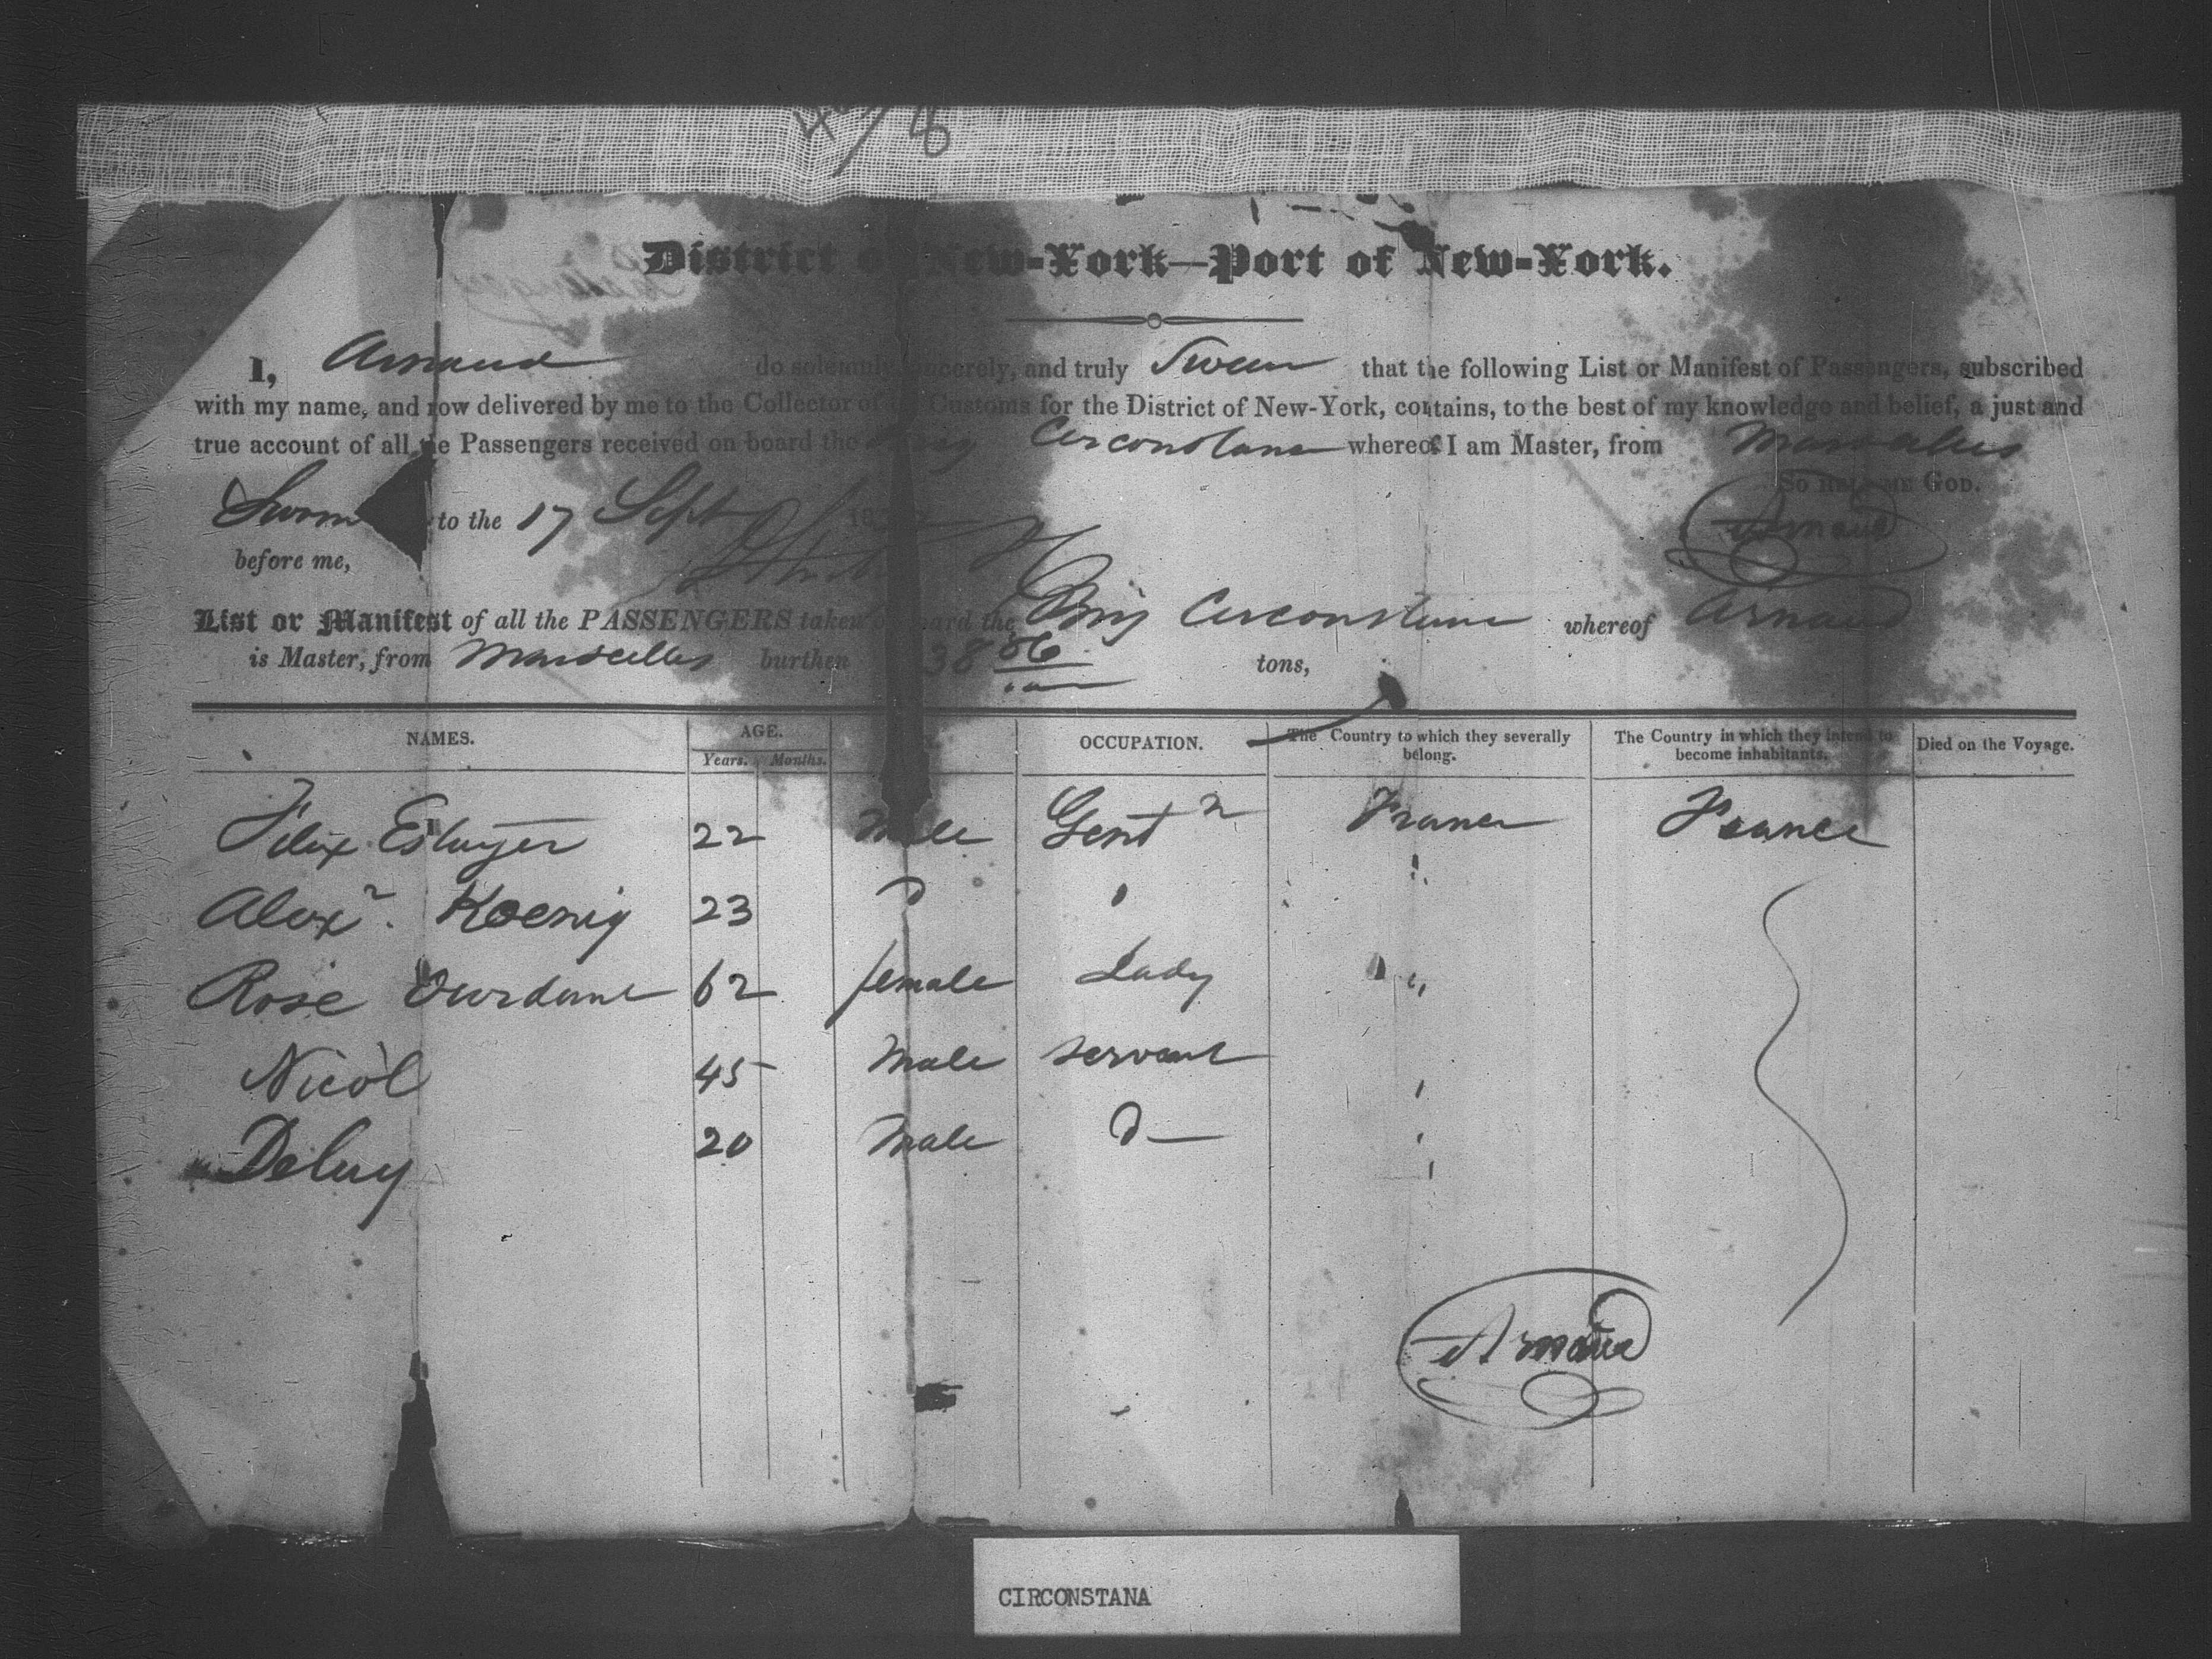 478
District New-York—Port of New-York.
I, Arnaud do solemnly, sincerely, and truly Swear that the following List or Manifest of Passengers, subscribed
with my name, and now delivered by me to the Collector of the Customs for the District of New-York, contains, to the best of my knowledge and belief, a just and
true account of all the Passengers received on board the Brig Circonstance whereof I am Master, from Marseilles
So help me God.
Sworn to the 17 Sept
Arnaud
before me,
List or Manifest of all the PASSENGERS taken board the Brig Circonstance whereof Arnaud
is Master, from Marseilles burthen tons,
NAMES. AGE. OCCUPATION. The Country to which they severally belong. The Country in which they intend to become inhabitants. Died on the Voyage.
Years. Months.
Felix 22 Male Gentn France France
Alexr. Koenig 23 " " "
Rose 62 female Lady "
Nicol 45 Male servant "
Deluy 20 Male D— "
Arnaud
CIRCONSTANA